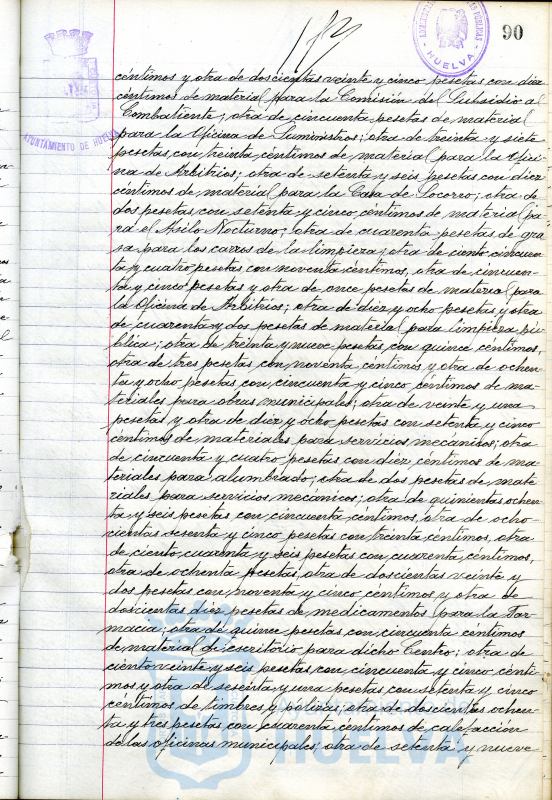 90
AYUNTAMIENTO DE HUELVA
HUELVA
céntimos y otra de doscientas veinte y cinco pesetas con diez
céntimos de material para la Comisión del Subsidio al
Combatiente; otra de cincuenta pesetas de material
para la Oficina de Suministros; otra de treinta y siete
pesetas con treinta céntimos de material para la Ofici-
na de Arbitrios; otra de setenta y seis pesetas con diez
céntimos de material para la Casa de Socorro; otra de
dos pesetas con setenta y cinco céntimos de material pa-
ra el Asilo Nocturno; otra de cuarenta pesetas de gra-
sa para los carros de la limpieza; otra de ciento cincuen-
ta y cuatro pesetas con noventa céntimos, otra de cincuen-
ta y cinco pesetas y otra de once pesetas de material para
la Oficina de Arbitrios; otra de diez y ocho pesetas y otra
de cuarenta y dos pesetas de material para limpieza pú-
blica; otra de treinta y nueve pesetas con quince céntimos,
otra de tres pesetas con noventa céntimos y otra de ochen-
ta y ocho pesetas con cincuenta y cinco céntimos de ma-
teriales para obras municipales; otra de veinte y una
pesetas y otra de diez y ocho pesetas con setenta y cinco
céntimos de materiales para servicios mecánicos; otra
de cincuenta y cuatro pesetas con diez céntimos de ma-
teriales para alumbrado; otra de dos pesetas de mate-
riales para servicios mecánicos; otra de quinientas ochen-
ta y seis pesetas con cincuenta céntimos, otra de ocho-
cientas sesenta y cinco pesetas con treinta céntimos, otra
de ciento cuarenta y seis pesetas con cuarenta céntimos,
otra de ochenta pesetas, otra de doscientas veinte y
dos pesetas con noventa y cinco céntimos y otra de
doscientas diez pesetas de medicamentos para la Far-
macia; otra de quince pesetas con cincuenta céntimos
de material de escritorio para dicho Centro; otra de
ciento veinte y seis pesetas con cincuenta y cinco cénti-
mos y otra de sesenta y una pesetas con setenta y cinco
céntimos de timbres y pólizas; otra de doscientas ochen-
ta y tres pesetas con cuarenta céntimos de calefacción
de las oficinas municipales; otra de setenta y nueve
HUELVA